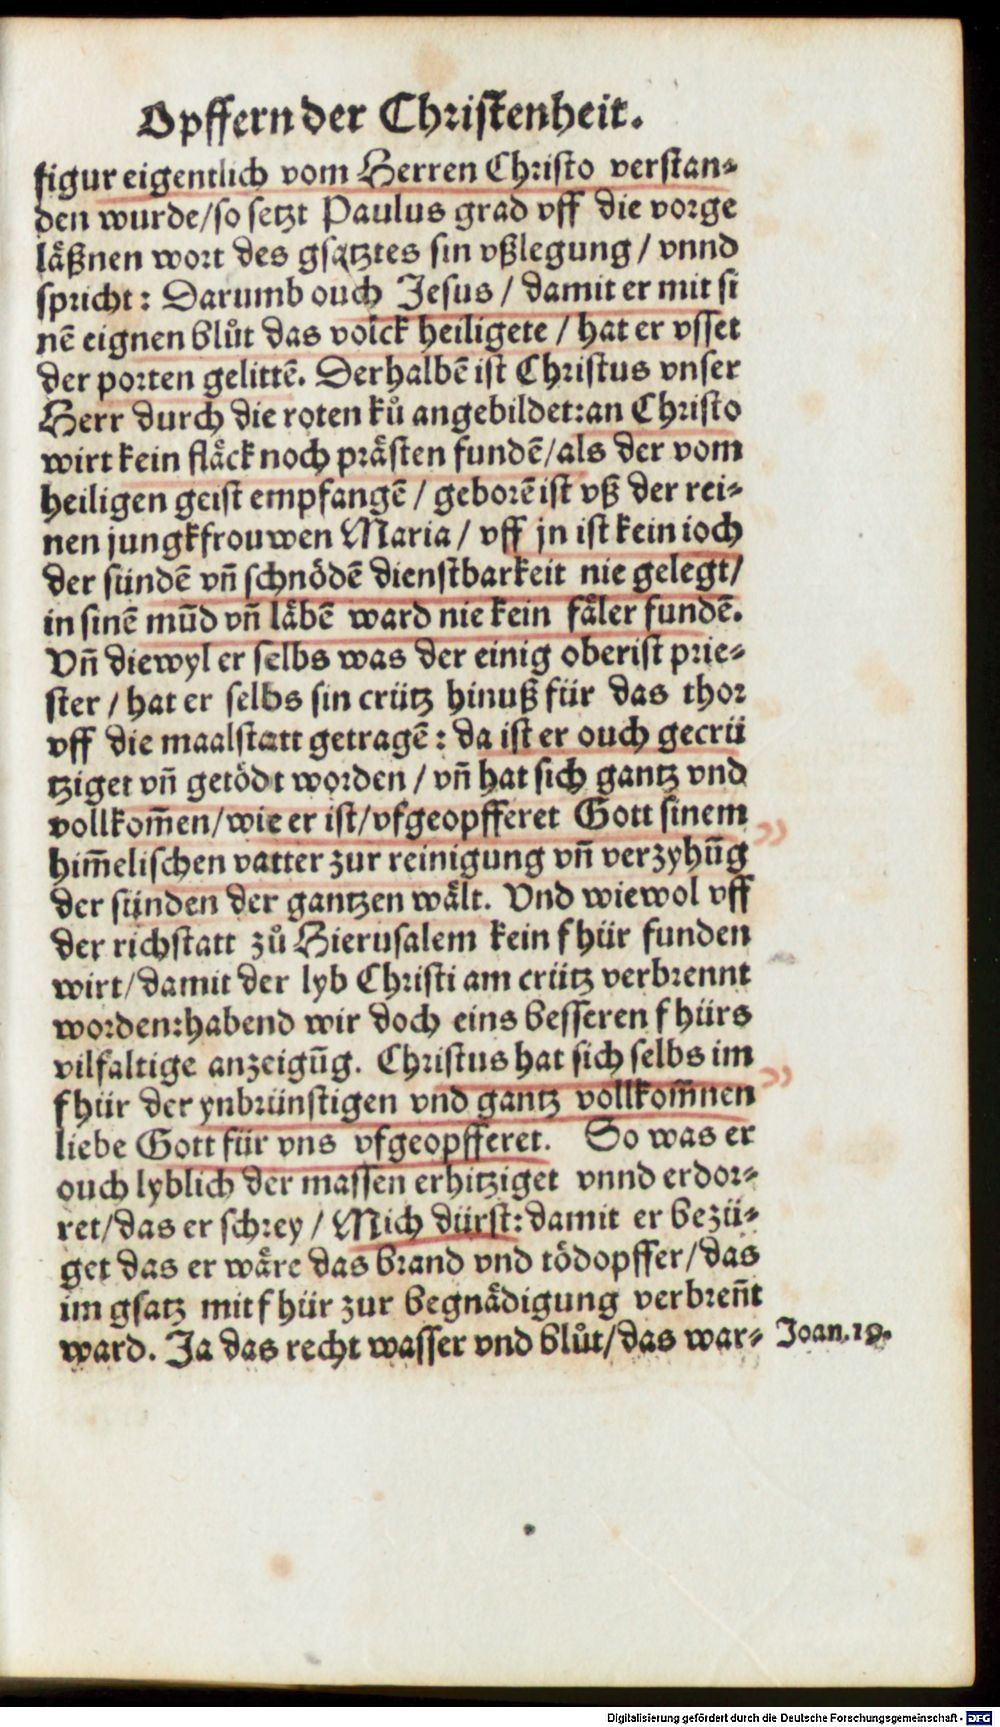 Opffern der Christenheit.
figur eigentlich vom Herren Christo verstan⸗
den wurde/so setzt Paulus grad vff die vorge
läßnen wort des gsatztes sin vßlegung / vnnd
spricht: Darumb ouch Jesus / damit er mit si
nē eignen blůt das volck heiligete / hat er vsset
der porten gelittē. Derhalbē ist Christus vnser
Herr durch die roten ků angebildet:an Christo
wirt kein fläck noch prästen fundē/als der vom
heiligen geist empfangē / geborē ist vß der rei⸗
nen jungkfrouwen Maria / vff jn ist kein ioch
der sündē vn̄ schnödē dienstbarkeit nie gelegt/
in sinē mūd vn̄ läbē ward nie kein fäler fundē.
Vn̄ diewyl er selbs was der einig oberist prie⸗
ster / hat er selbs sin crütz hinuß für das thor
vff die maalstatt getragē: da ist er ouch gecrü
tziget vn̄ getödt worden / vn̄ hat sich gantz vnd
vollkom̄en/wie er ist/vfgeopfferet Gott sinem
him̄elischen vatter zur reinigung vn̄ verzyhūg
der sünden der gantzen wält. Vnd wiewol vff
der richstatt zů Hierusalem kein fhür funden
wirt/damit der lyb Christi am crütz verbrennt
worden:habend wir doch eins besseren fhürs
vilfaltige anzeigūg. Christus hat sich selbs im
fhür der ynbrünstigen vnd gantz vollkom̄nen
liebe Gott für vns vfgeopfferet. So was er
ouch lyblich der massen erhitziget vnnd erdor⸗
ret/das er schrey / Mich dürst:damit er bezü⸗
get das er wäre das brand vnd tödopffer/das
im gsatz mit fhür zur begnädigung verbren̄t
ward. Ja das recht wasser vnd blůt/das war⸗
Joan.19.
Digitalisierung gefördert durch die Deutsche Forschungsgemeinschaft - DFG